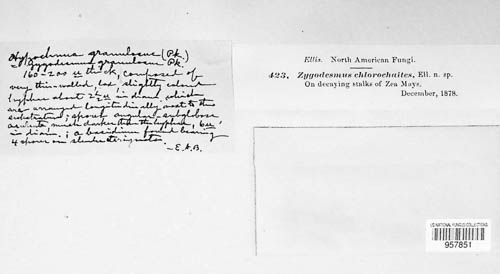 Hypochnus granulosus (Pk.)
= Zygodesmus granulosus Pk.
160-200 u thick, composed of
very thin-walled, but slightly colored
hyphae about 2½ u in diam. which
are wound longitudinally next to the
substratum; spores angular-subglobose
aculeate much darker than the hyphae, 6u
in diam.; a basidium found bearing
4 spores on slender sterigmata.
—E.A.B.
Ellis. North American Fungi.
423. Zygodesmus chlorochaites, Ell. n. sp.
On decaying stalks of Zea Mays.
December, 1878.
US NATIONAL FUNGUS COLLECTIONS
957851